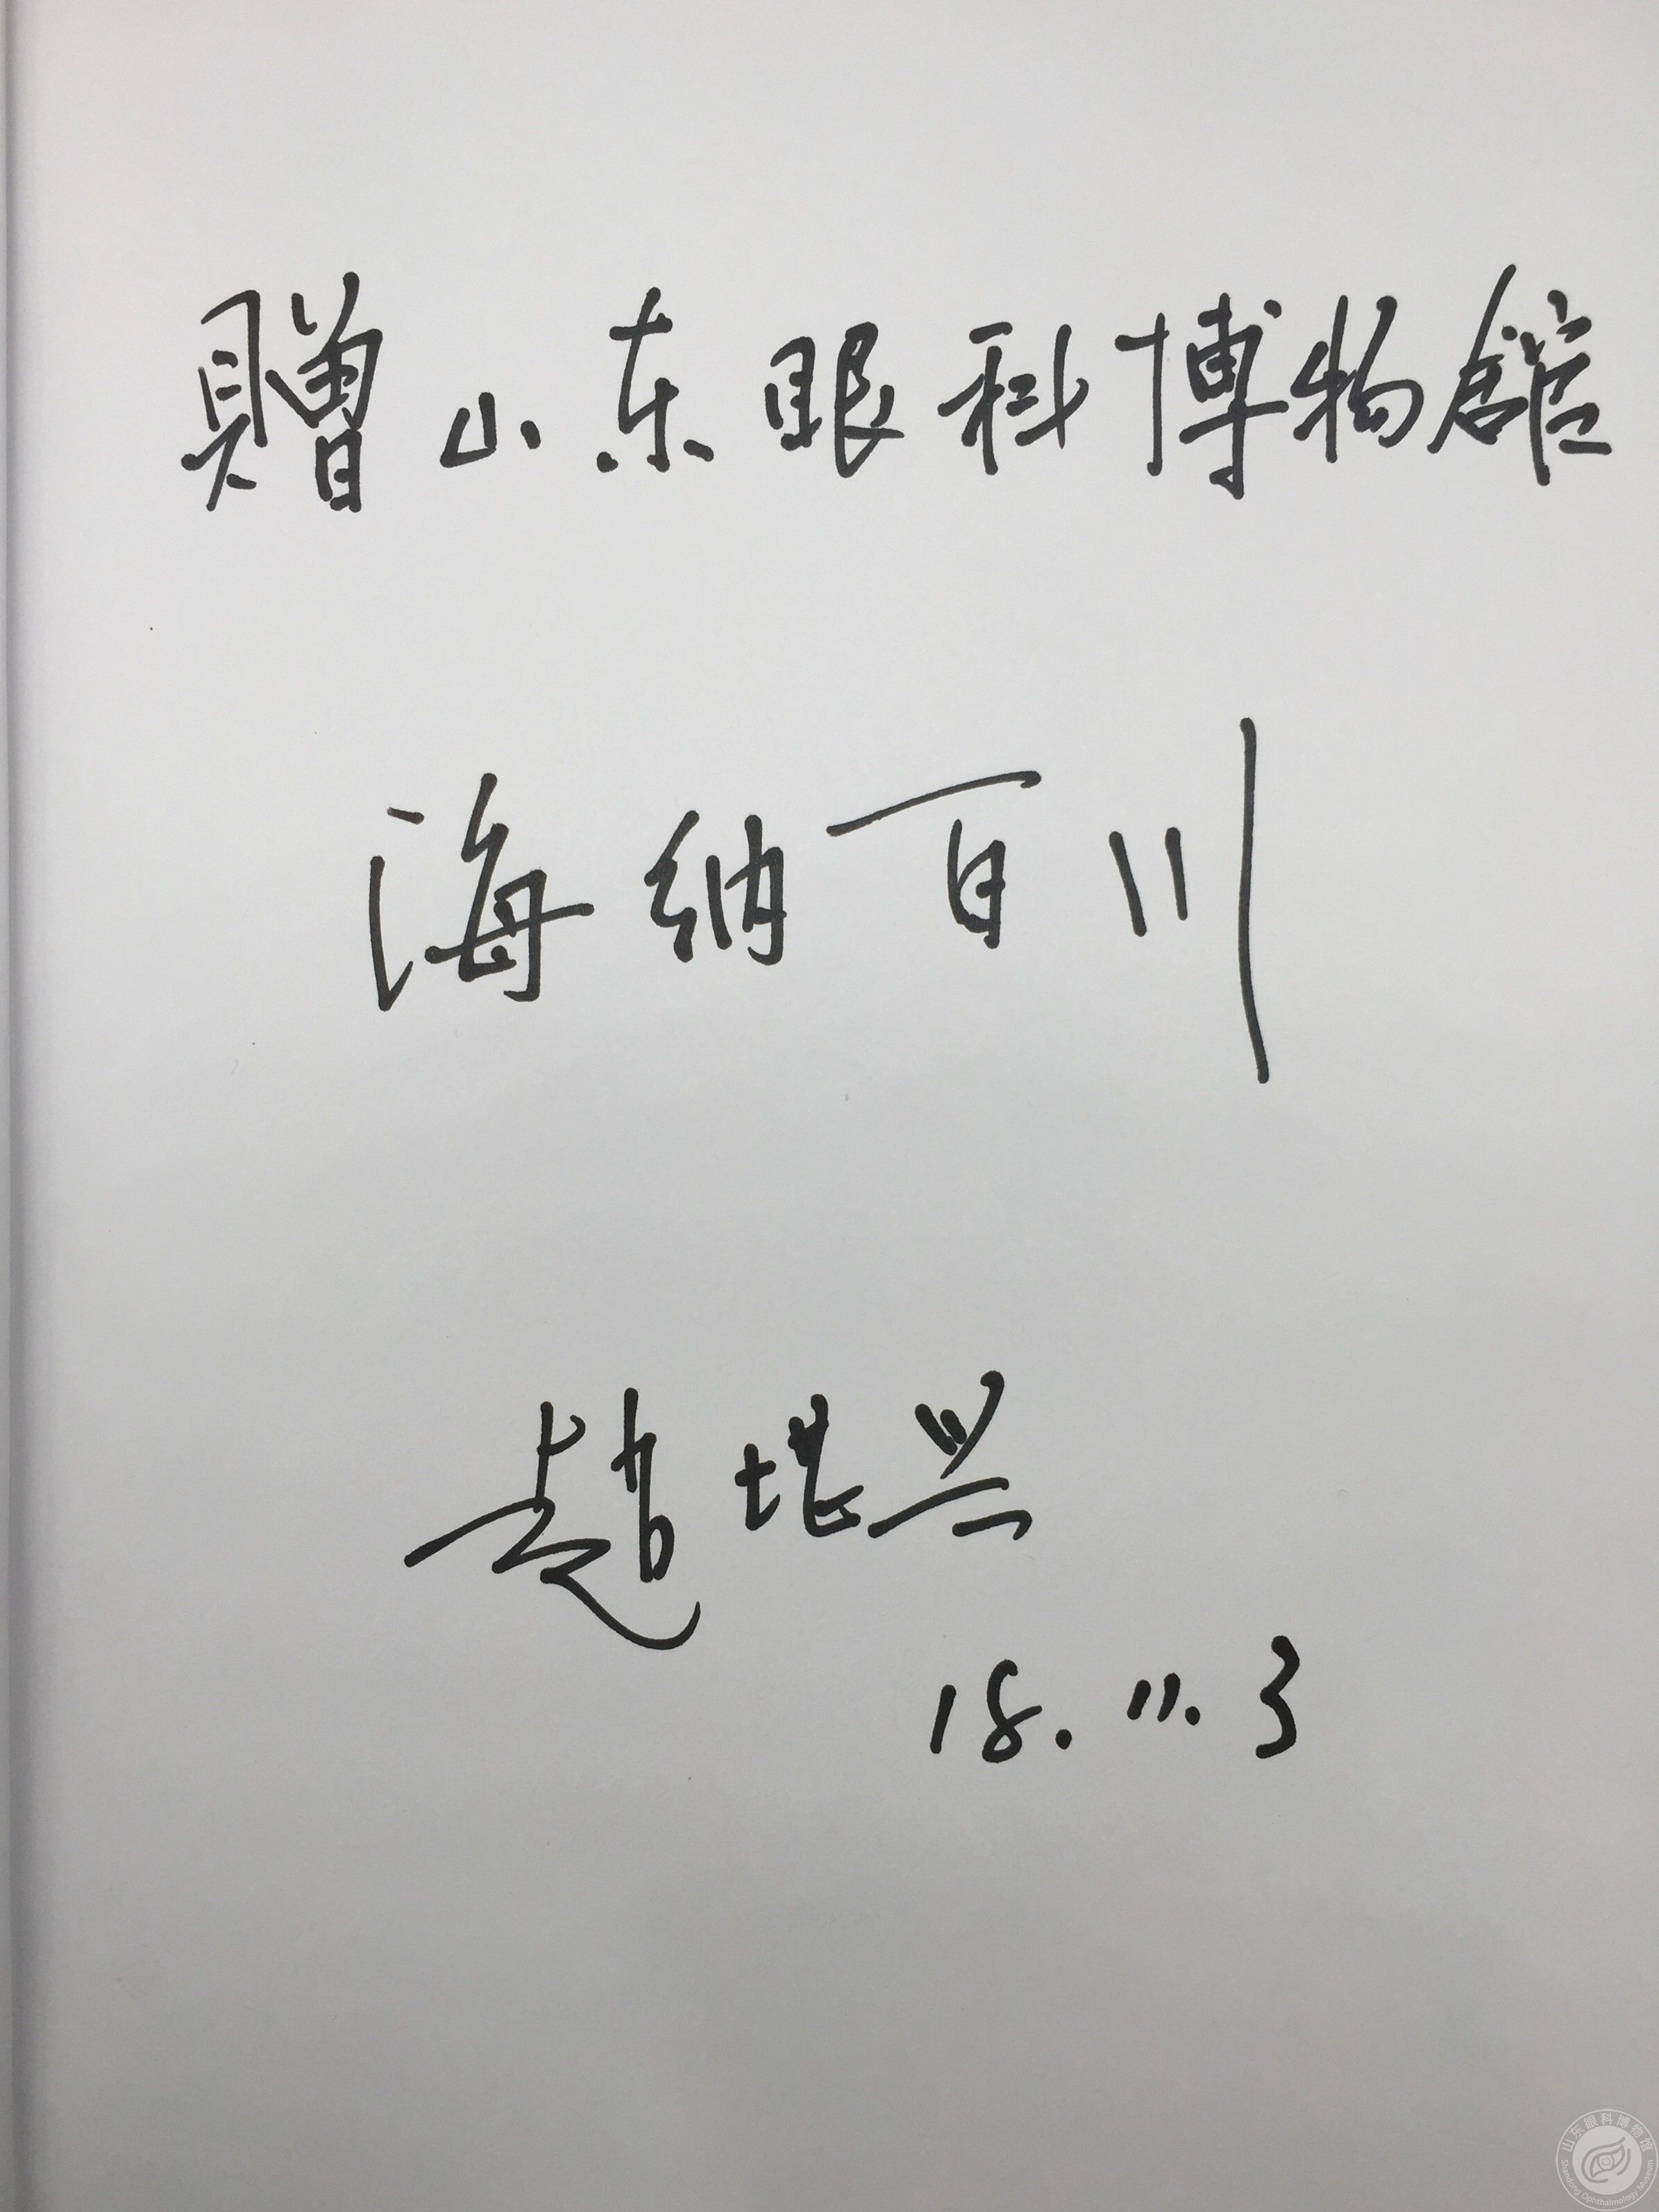 贈山东眼科博物館
海纳百川
赵堪兴
18.11.3
山东眼科博物馆
Shandong Ophthalmology Museum